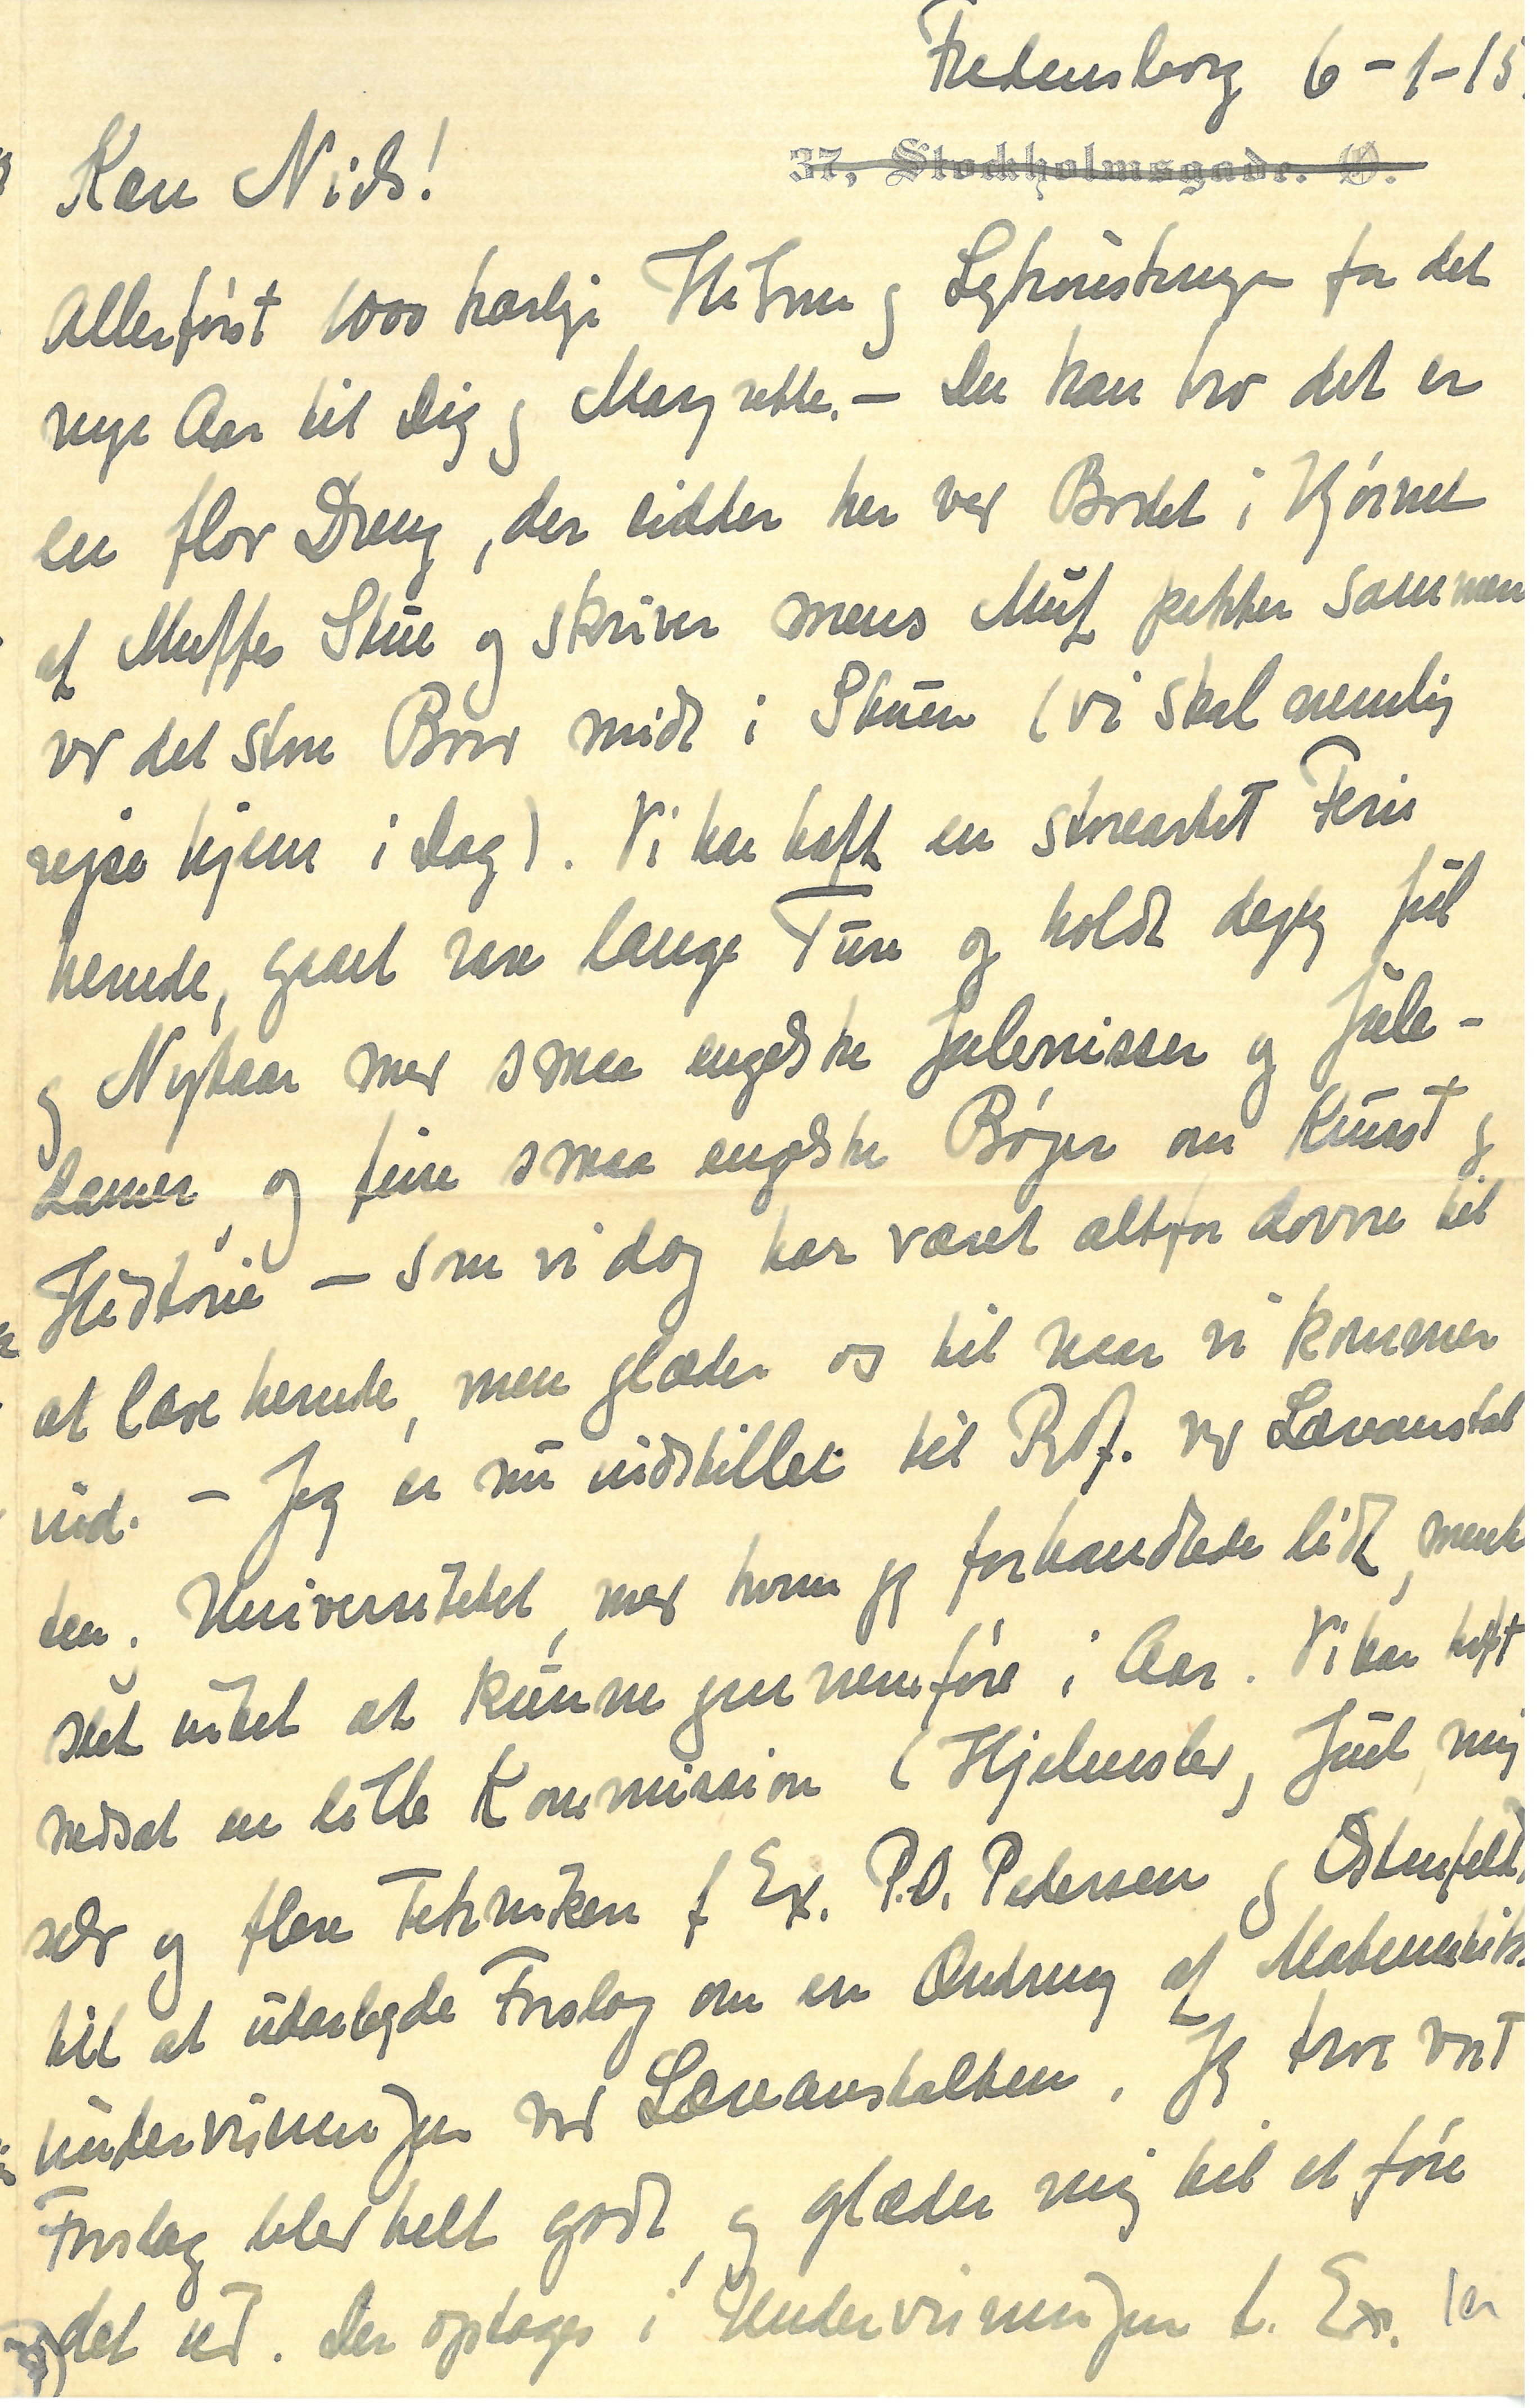 Fredensborg 6-1-15.
37, Stockholmsgade. Ø.
Kære Niels!
Allerførst 1000 kærlige Hilsner og Lykønskninger for det
nye Aar til Dig og Margrethe. – Du kan tro det er
en flov Dreng, der sidder her ved Bordet i Hjørnet
af Muffes Stue og skriver mens Muf pakker sammen
ved det store Bord midt i Stuen (vi skal nemlig
rejse hjem i Dag). Vi har haft en storeartet Ferie
herude, gaaet rare lange Ture og holdt dejlig Jul
og Nytaar med smaa engelske Julenisser og Jule-
damer, og fine smaa engelske Bøger om Kunst og
Historie – som vi dog har været altfor dovne til
at læse herude, men glæder os til naar vi kommer
ind. – Jeg er nu indstillet til Prof. ved Læreanstal
ten. Universitetet, med hvem jeg forhandlede lidt, mente
slet intet at kunne gennemføre i Aar. Vi har haft
nedsat en lille Kommission (Hjelmslev, Juul, mig
selv og flere Teknikere f Ex. P.O. Pedersen og Ostenfeld)
til at udarbejde Forslag om en Ændring af Matematik-
undervisningen ved Læreanstalten. Jeg tror vort
Forslag blev helt godt, og glæder mig til at føre
det ud. Der optages i Undervisningen f. Ex.